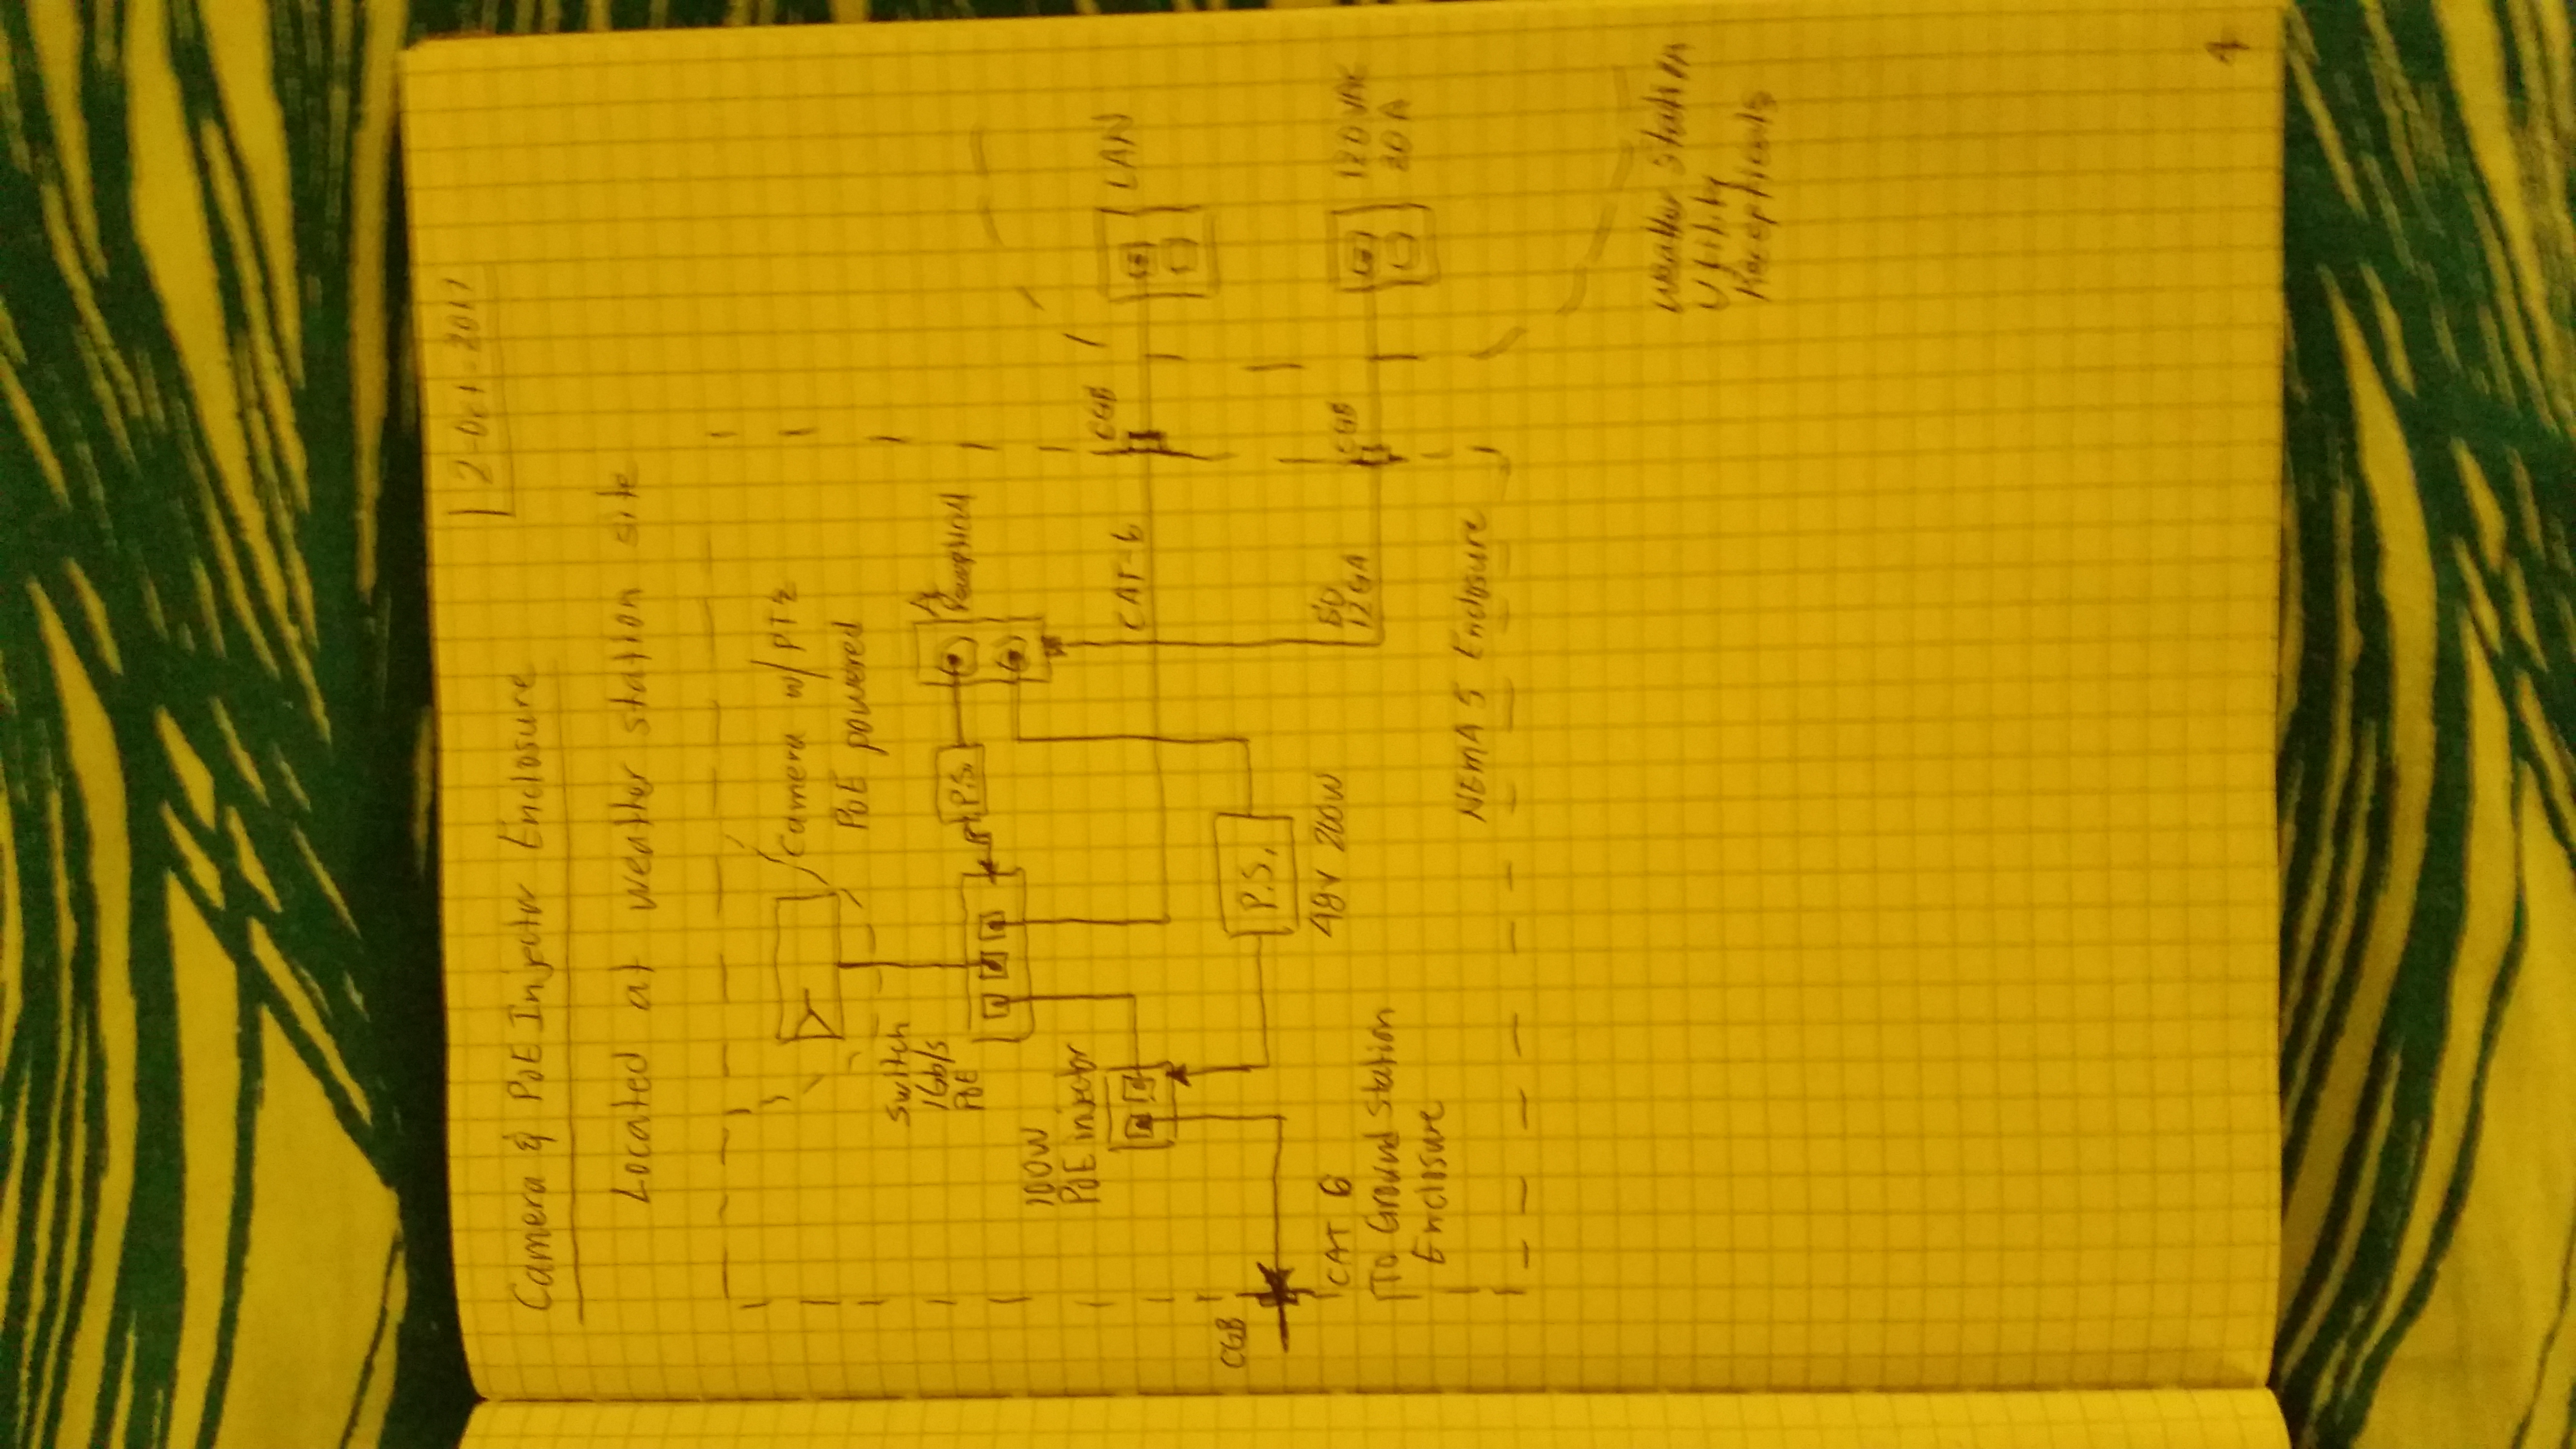 2-Oct-2017
Camera & PoE Injector Enclosure
Located at weather station site
Camera w/ PTZ
PoE powered
Switch
1Gb/s
PoE
P.S.
Recepticall
100W
PoE injector
CGB
LAN
CAT-6
CGB
P.S.
48V 200W
CAT 6
To Ground Station
Enclosure
12GA
CGB
120 VAC
20A
NEMA 5 Enclosure
Weather Station
Utility
Recepticals